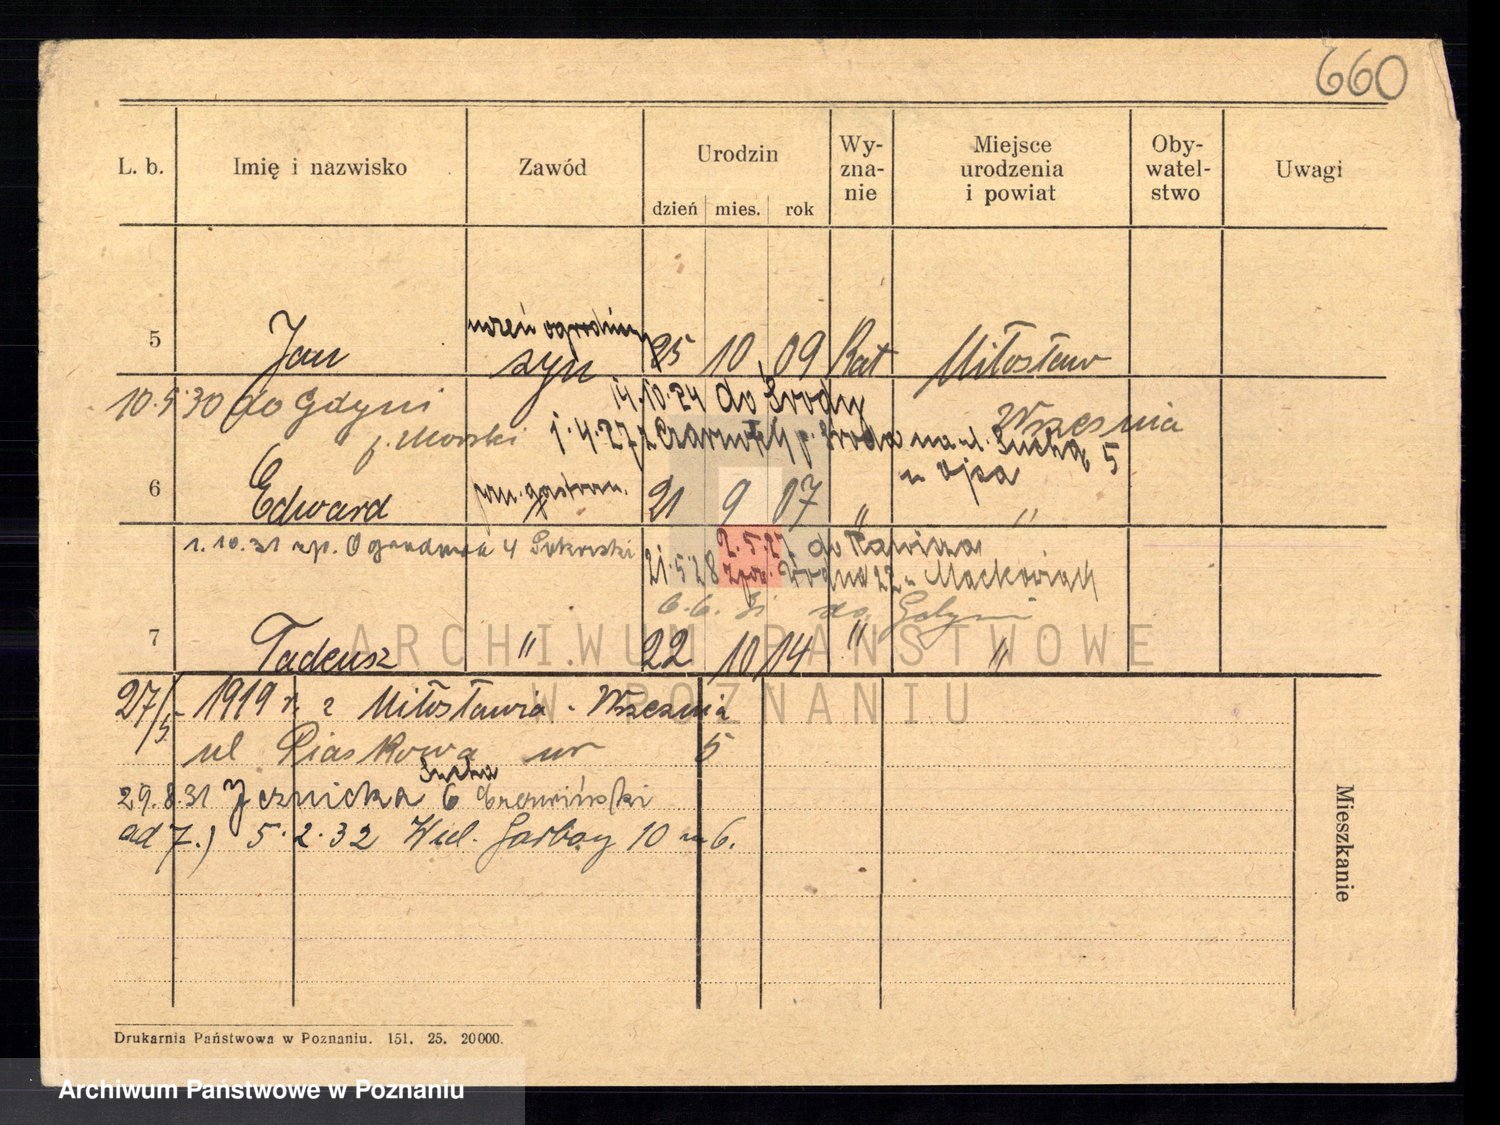 660
L. b. Imię i nazwisko Zawód Urodzin Wy-zna-nie Miejsce urodzenia i powiat Oby-watel-stwo Uwagi
dzień mies. rok
uczeń ogrodniczy
5 Jan syn 25 10 09 Kat Miłosław
10.5.30 do Gdyni 14.10.24 do Środy Września
p. Morski 1.4.27 z p. Środa na ul. Suchą 5
u ojca
6 Edward 21 9 07 " "
1.10.31 4 2.5.27 do Rawicza
21.5.28 22
6.6. do Gdyni
7 Tadeusz " 22 10 14 " "
27/5 1919 r. z Miłosławia - Września
ul Piaskowa nr 5
Sucha
29.8.31 6
ad 7.) 5.2.32 Wiel. Garbary 10 m 6.
Mieszkanie
Drukarnia Państwowa w Poznaniu. 151. 25. 20000.
ARCHIWUM PAŃSTWOWE
W POZNANIU
Archiwum Państwowe w Poznaniu